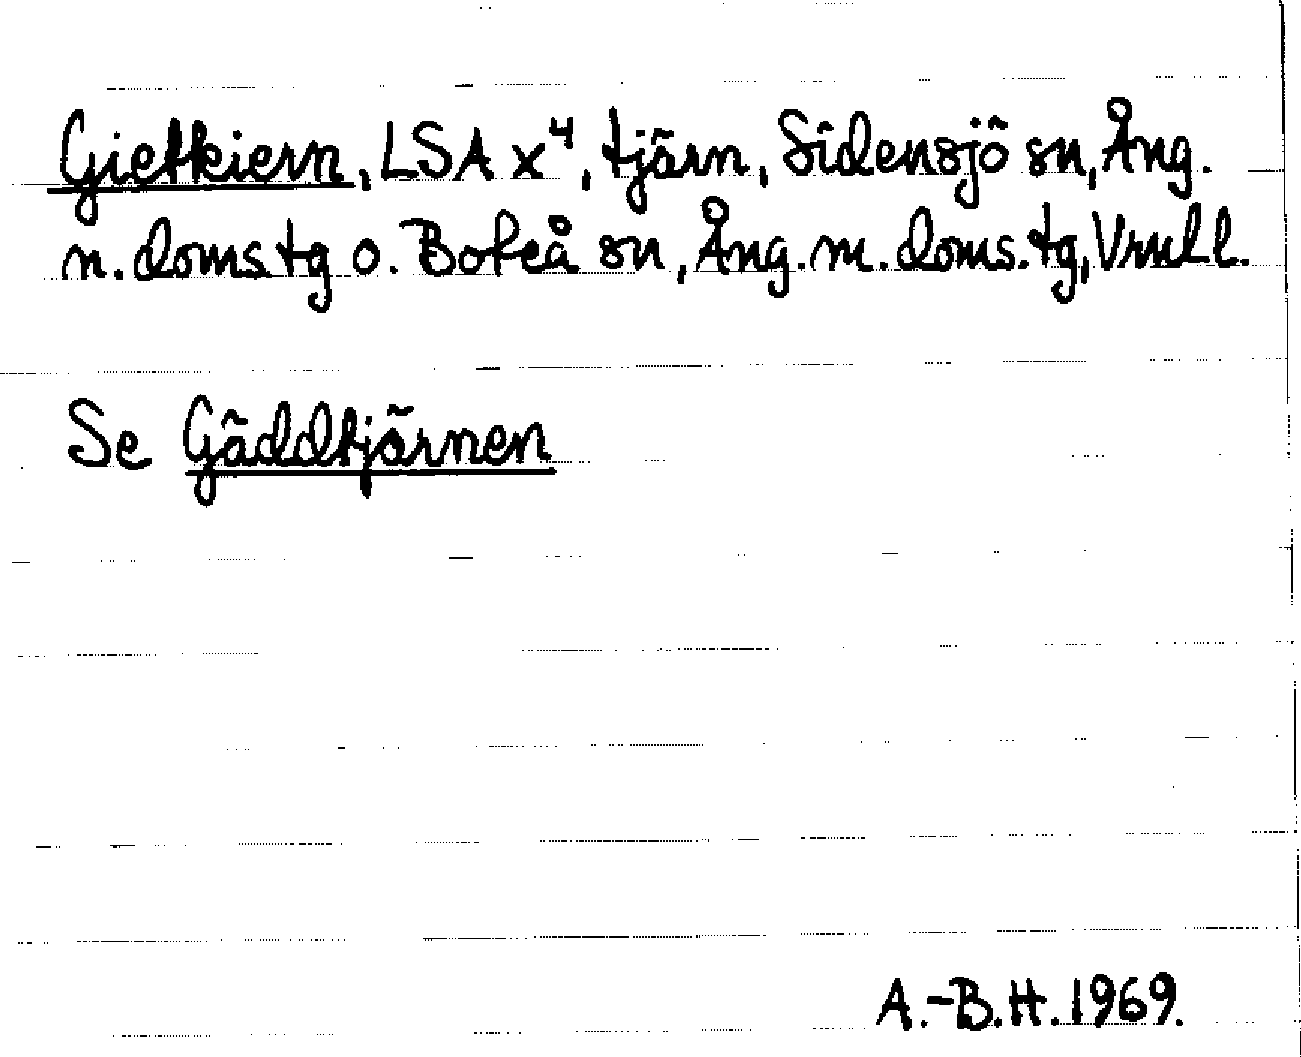 Gietkiern, LSA x⁴, tjärn, Sidensjö sn, Ång.
n. doms.tg o. Boteå sn, Ång. m. doms.tg, Vrnll.
Se Gäddtjärnen
A.-B.H. 1969.